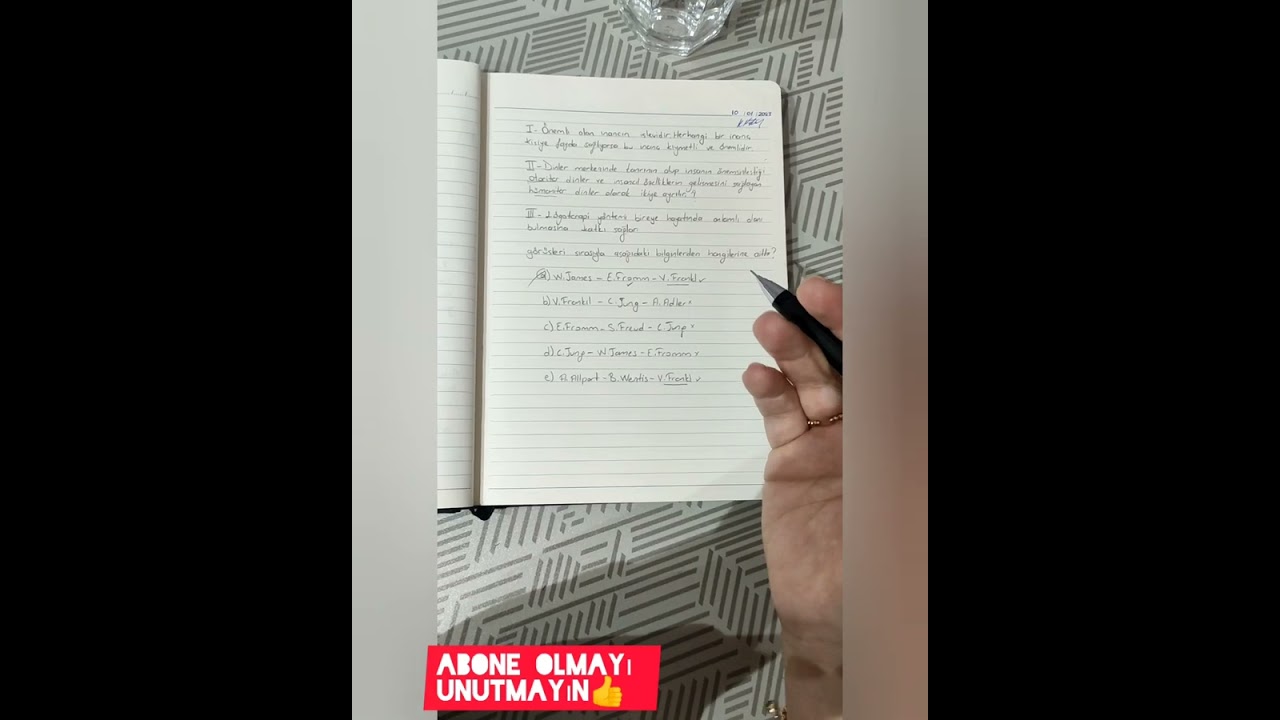 10 01 2023
I- Önemli olan inancın işlevidir. Herhangi bir inanç
kişiye fayda sağlıyorsa bu inanç kıymetli ve önemlidir.
II- Dinler merkezinde tanrının olup insanın önemsizleştiği
otoriter dinler ve insancıl özelliklerin gelişmesini sağlayan
hümaniter dinler olarak ikiye ayrılır?
III- Logoterapi yöntemi bireye hayatında anlamlı olanı
bulmasına katkı sağlar.
görüşleri sırasıyla aşağıdaki bilginlerden hangilerine aittir?
a) W. James - E. Fromm - V. Frankl ✓
b) V. Frankl - C. Jung - A. Adler x
c) E. Fromm - S. Freud - C. Jung x
d) C. Jung - W James - E. Fromm x
e) A. Allport - B. Wentis - V. Frankl ✓
ABONE OLMAYI
UNUTMAYIN👍